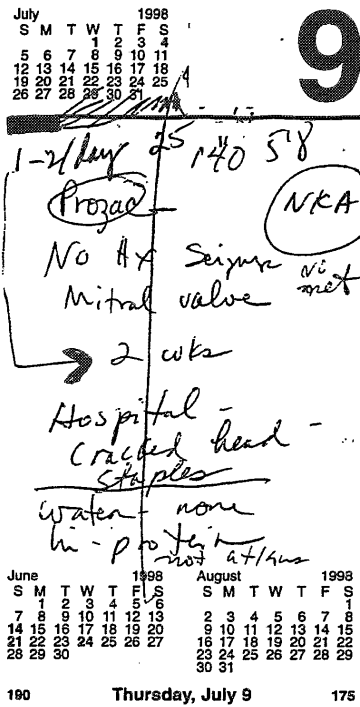 July 1998
S M T W T F S
1 2 3 4
5 6 7 8 9 10 11
12 13 14 15 16 17 18
19 20 21 22 23 24 25
26 27 28 29 30 31
9
1-2/day 25 140 5'8
Prozac NKA
No Hx Seizure
Mitral valve
2 wks
Hospital -
Cracked head -
Staples
water - none
hi - protein
not at/hus
June 1998
S M T W T F S
1 2 3 4 5 6
7 8 9 10 11 12 13
14 15 16 17 18 19 20
21 22 23 24 25 26 27
28 29 30
August 1998
S M T W T F S
1
2 3 4 5 6 7 8
9 10 11 12 13 14 15
16 17 18 19 20 21 22
23 24 25 26 27 28 29
30 31
190 Thursday, July 9 175